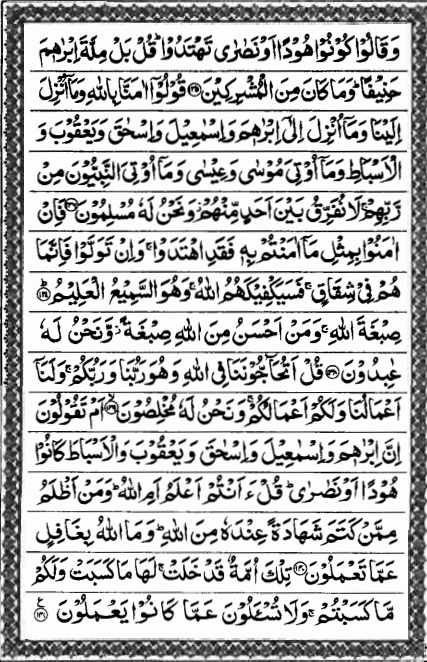 وَقَالُوْا كُوْنُوْا هُوْدًا اَوْ نَصٰرٰى تَهْتَدُوْا ؕ قُلْ بَلْ مِلَّةَ اِبْرٰهٖمَ
حَنِيْفًا ؕ وَمَا كَانَ مِنَ الْمُشْرِكِيْنَ ﴿۱۳۵﴾ قُوْلُوْۤا اٰمَنَّا بِاللّٰهِ وَمَاۤ اُنْزِلَ
اِلَيْنَا وَمَاۤ اُنْزِلَ اِلٰۤى اِبْرٰهٖمَ وَاِسْمٰعِيْلَ وَاِسْحٰقَ وَيَعْقُوْبَ وَ
الْاَسْبَاطِ وَمَاۤ اُوْتِيَ مُوْسٰى وَعِيْسٰى وَمَاۤ اُوْتِيَ النَّبِيُّوْنَ مِنْ
رَّبِّهِمْ ۚ لَا نُفَرِّقُ بَيْنَ اَحَدٍ مِّنْهُمْ ۖ وَنَحْنُ لَهٗ مُسْلِمُوْنَ ﴿۱۳۶﴾ فَاِنْ
اٰمَنُوْا بِمِثْلِ مَاۤ اٰمَنْتُمْ بِهٖ فَقَدِ اهْتَدَوْا ۚ وَاِنْ تَوَلَّوْا فَاِنَّمَا
هُمْ فِيْ شِقَاقٍ ۚ فَسَيَكْفِيْكَهُمُ اللّٰهُ ۚ وَهُوَ السَّمِيْعُ الْعَلِيْمُ ﴿۱۳۷﴾ؕ
صِبْغَةَ اللّٰهِ ۚ وَمَنْ اَحْسَنُ مِنَ اللّٰهِ صِبْغَةً ؗ وَّنَحْنُ لَهٗ
عٰبِدُوْنَ ﴿۱۳۸﴾ قُلْ اَتُحَآجُّوْنَنَا فِي اللّٰهِ وَهُوَ رَبُّنَا وَرَبُّكُمْ ۚ وَلَنَاۤ
اَعْمَالُنَا وَلَكُمْ اَعْمَالُكُمْ ۚ وَنَحْنُ لَهٗ مُخْلِصُوْنَ ﴿۱۳۹﴾ۙ اَمْ تَقُوْلُوْنَ
اِنَّ اِبْرٰهٖمَ وَاِسْمٰعِيْلَ وَاِسْحٰقَ وَيَعْقُوْبَ وَالْاَسْبَاطَ كَانُوْا
هُوْدًا اَوْ نَصٰرٰى ؕ قُلْ ءَاَنْتُمْ اَعْلَمُ اَمِ اللّٰهُ ؕ وَمَنْ اَظْلَمُ
مِمَّنْ كَتَمَ شَهَادَةً عِنْدَهٗ مِنَ اللّٰهِ ؕ وَمَا اللّٰهُ بِغَافِلٍ
عَمَّا تَعْمَلُوْنَ ﴿۱۴۰﴾ تِلْكَ اُمَّةٌ قَدْ خَلَتْ ۚ لَهَا مَا كَسَبَتْ وَلَكُمْ
مَّا كَسَبْتُمْ ۚ وَلَا تُسْـَٔلُوْنَ عَمَّا كَانُوْا يَعْمَلُوْنَ ﴿۱۴۱﴾ ع